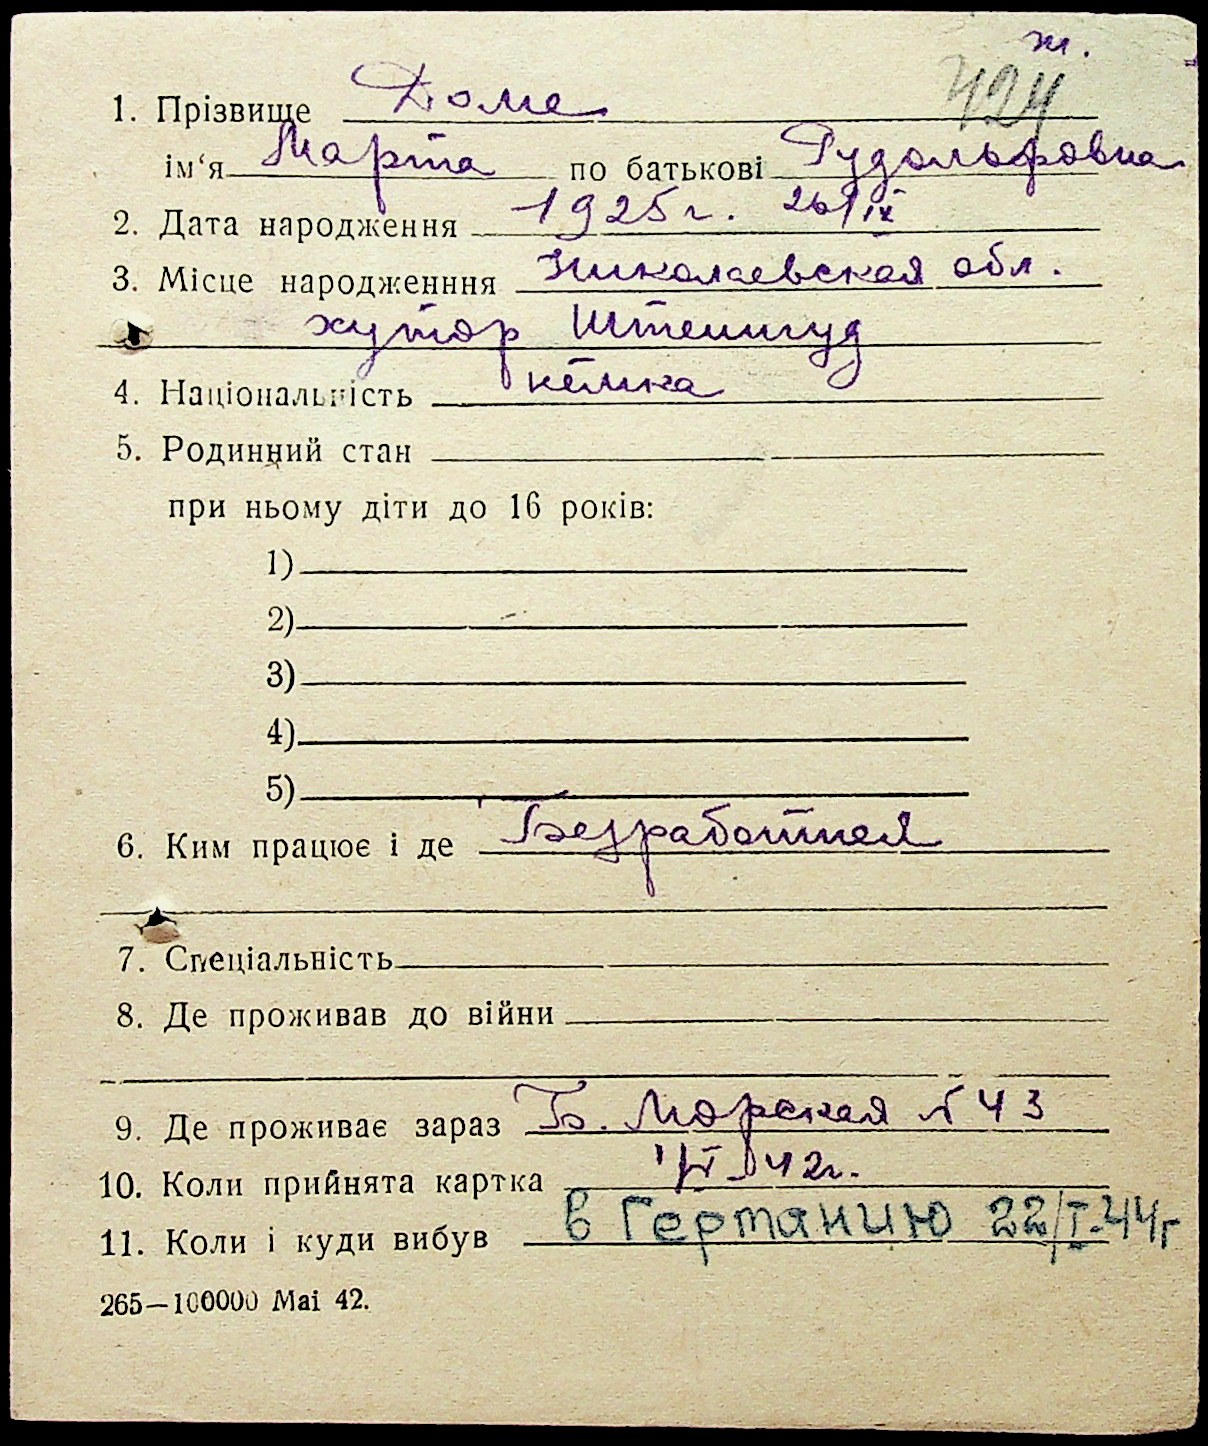 ж.
424
1. Прізвище Доме
ім‘я Марта по батькові Рудольфовна
2. Дата народження 1925 г. 26/IX
3. Місце народженння Николаевская обл.
хутор
4. Національність немка
5. Родинний стан
при ньому діти до 16 років:
1)
2)
3)
4)
5)
6. Ким працює і де Безработная
7. Спеціальність
8. Де проживав до війни
9. Де проживає зараз Б. Морская № 43
10. Коли прийнята картка 42г.
11. Коли і куди вибув в Германию 22/I-44г
265—100000 Mai 42.